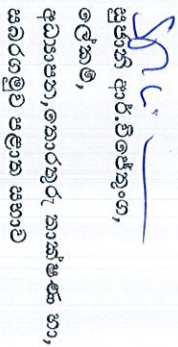 සුමාත් ආර්.විජේතුංග,
ලේකම්,
අධ්‍යාපන, තොරතුරු තාක්ෂණ හා,
සබරගමුව පළාත සභාව